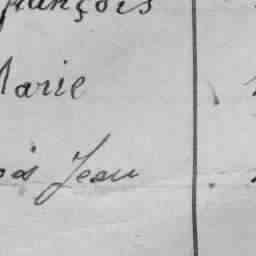 françois
Marie
Jean